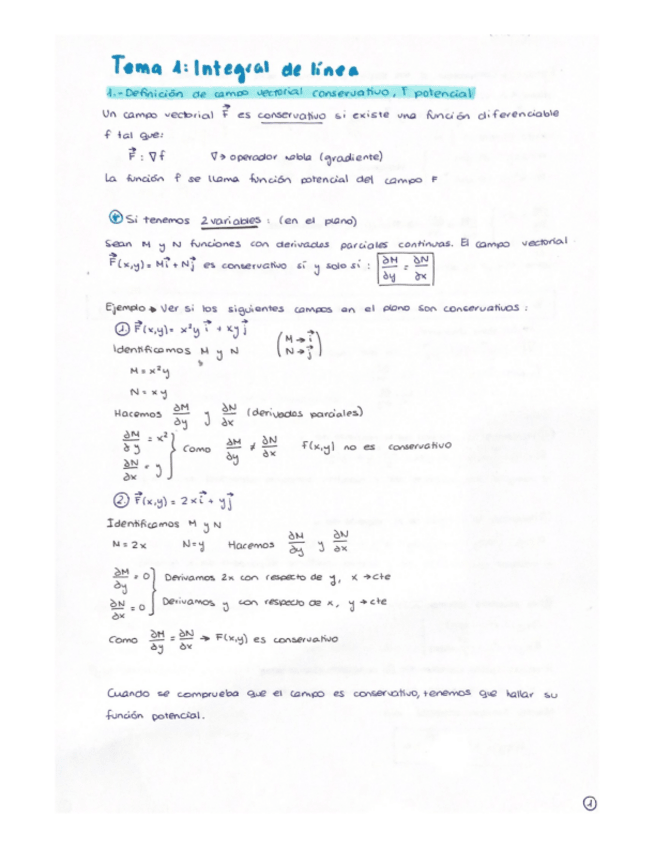 Tema 1: Integral de línea
1.- Definición de campo vectorial conservativo, F potencial
Un campo vectorial F⃗ es conservativo si existe una función diferenciable
f tal que:
F⃗ : ∇f ∇→ operador nabla (gradiente)
La función f se llama función potencial del campo F
Si tenemos 2 variables : (en el plano)
Sean M y N funciones con derivadas parciales continuas. El campo vectorial
F⃗(x,y)= Mi⃗ + Nj⃗ es conservativo sí y solo sí : ∂M/∂y = ∂N/∂x
Ejemplo → Ver si los siguientes campos en el plano son conservativos :
① F⃗(x,y)= x²y i⃗ + xy j⃗
Identificamos M y N (M→i⃗ N→j⃗)
M = x²y
N = xy
Hacemos ∂M/∂y y ∂N/∂x (derivadas parciales)
∂M/∂y = x²
∂N/∂x = y } Como ∂M/∂y ≠ ∂N/∂x f(x,y) no es conservativo
② F⃗(x,y) = 2x i⃗ + y j⃗
Identificamos M y N
M = 2x N=y Hacemos ∂M/∂y y ∂N/∂x
∂M/∂y = 0 } Derivamos 2x con respecto de y, x → cte
∂N/∂x = 0 } Derivamos y con respecto de x, y → cte
Como ∂M/∂y = ∂N/∂x → F(x,y) es conservativo
Cuando se comprueba que el campo es conservativo, tenemos que hallar su
función potencial.
①